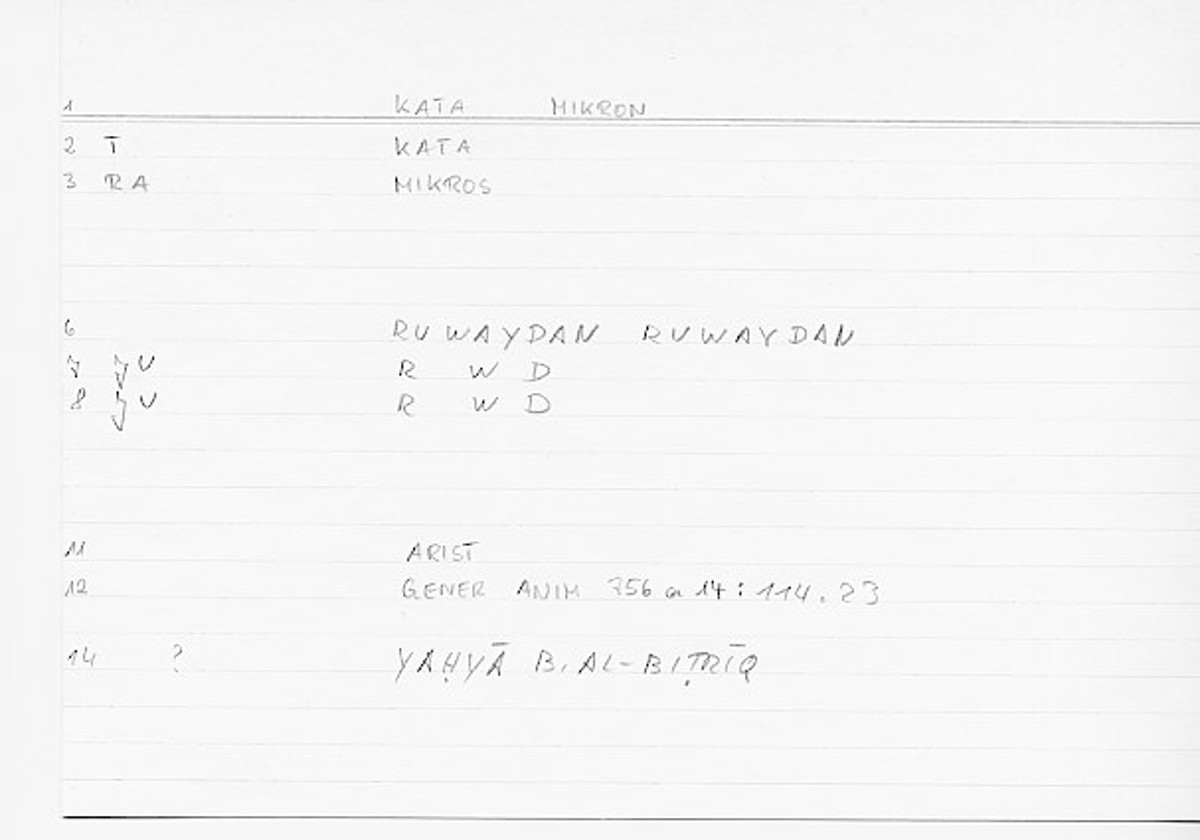 1 KATA MIKRON
2 T KATA
3 RA MIKROS
6 RUWAYDAN RUWAYDAN
7 R W D
8 R W D
11 ARIST
12 GENER ANIM 756 a 14 : 114.23
14 ? YAḤYĀ B. AL-BIṬRĪQ